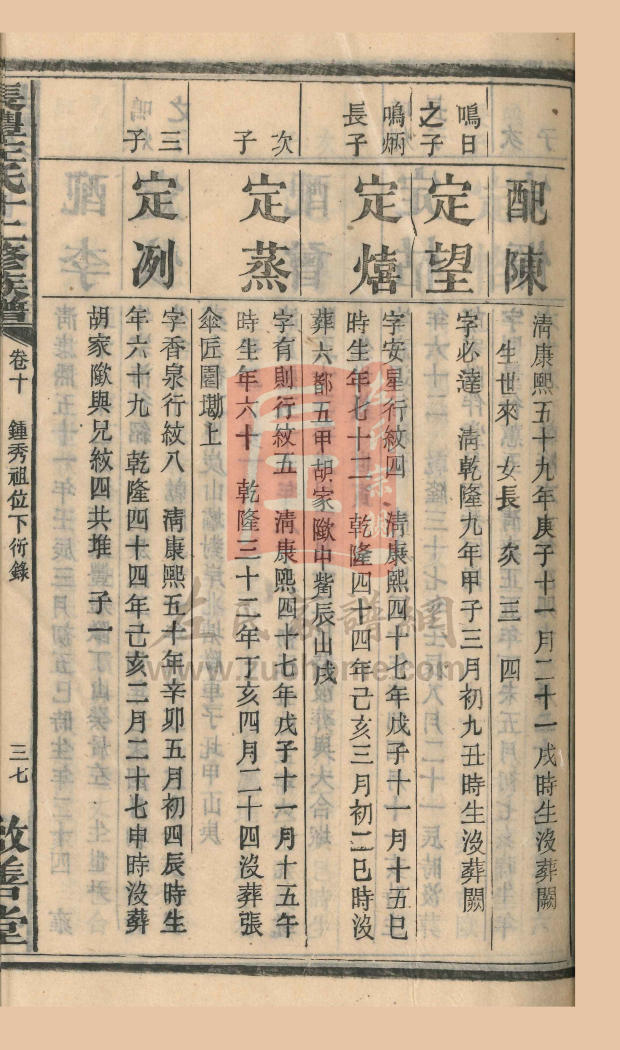 配陳
清康熙五十九年庚子十一月二十一戌時生沒葬闕
生世來 女長 次 三 四
鳴日
之子
定望
字必達 清乾隆九年甲子三月初九丑時生沒葬闕
鳴炳
長子
定熺
字安星行紋四 清康熙四十七年戊子十一月十五巳
時生年七十二 乾隆四十四年己亥三月初二巳時沒
葬六都五甲胡家歐中觜辰山戌
次
子
定蒸
字有則行紋五 清康熙四十七年戊子十一月十五午
時生年六十 乾隆三十二年丁亥四月二十四沒葬張
傘匠園墈上
三
子
定冽
字香泉行紋八 清康熙五十年辛卯五月初四辰時生
年六十九 乾隆四十四年己亥二月二十七申時沒葬
胡家歐與兄紋四共堆 子一
氏十二修族譜
卷十 鍾秀祖位下衍錄
三七
敦善堂
左氏家譜網
www.zuohome.com